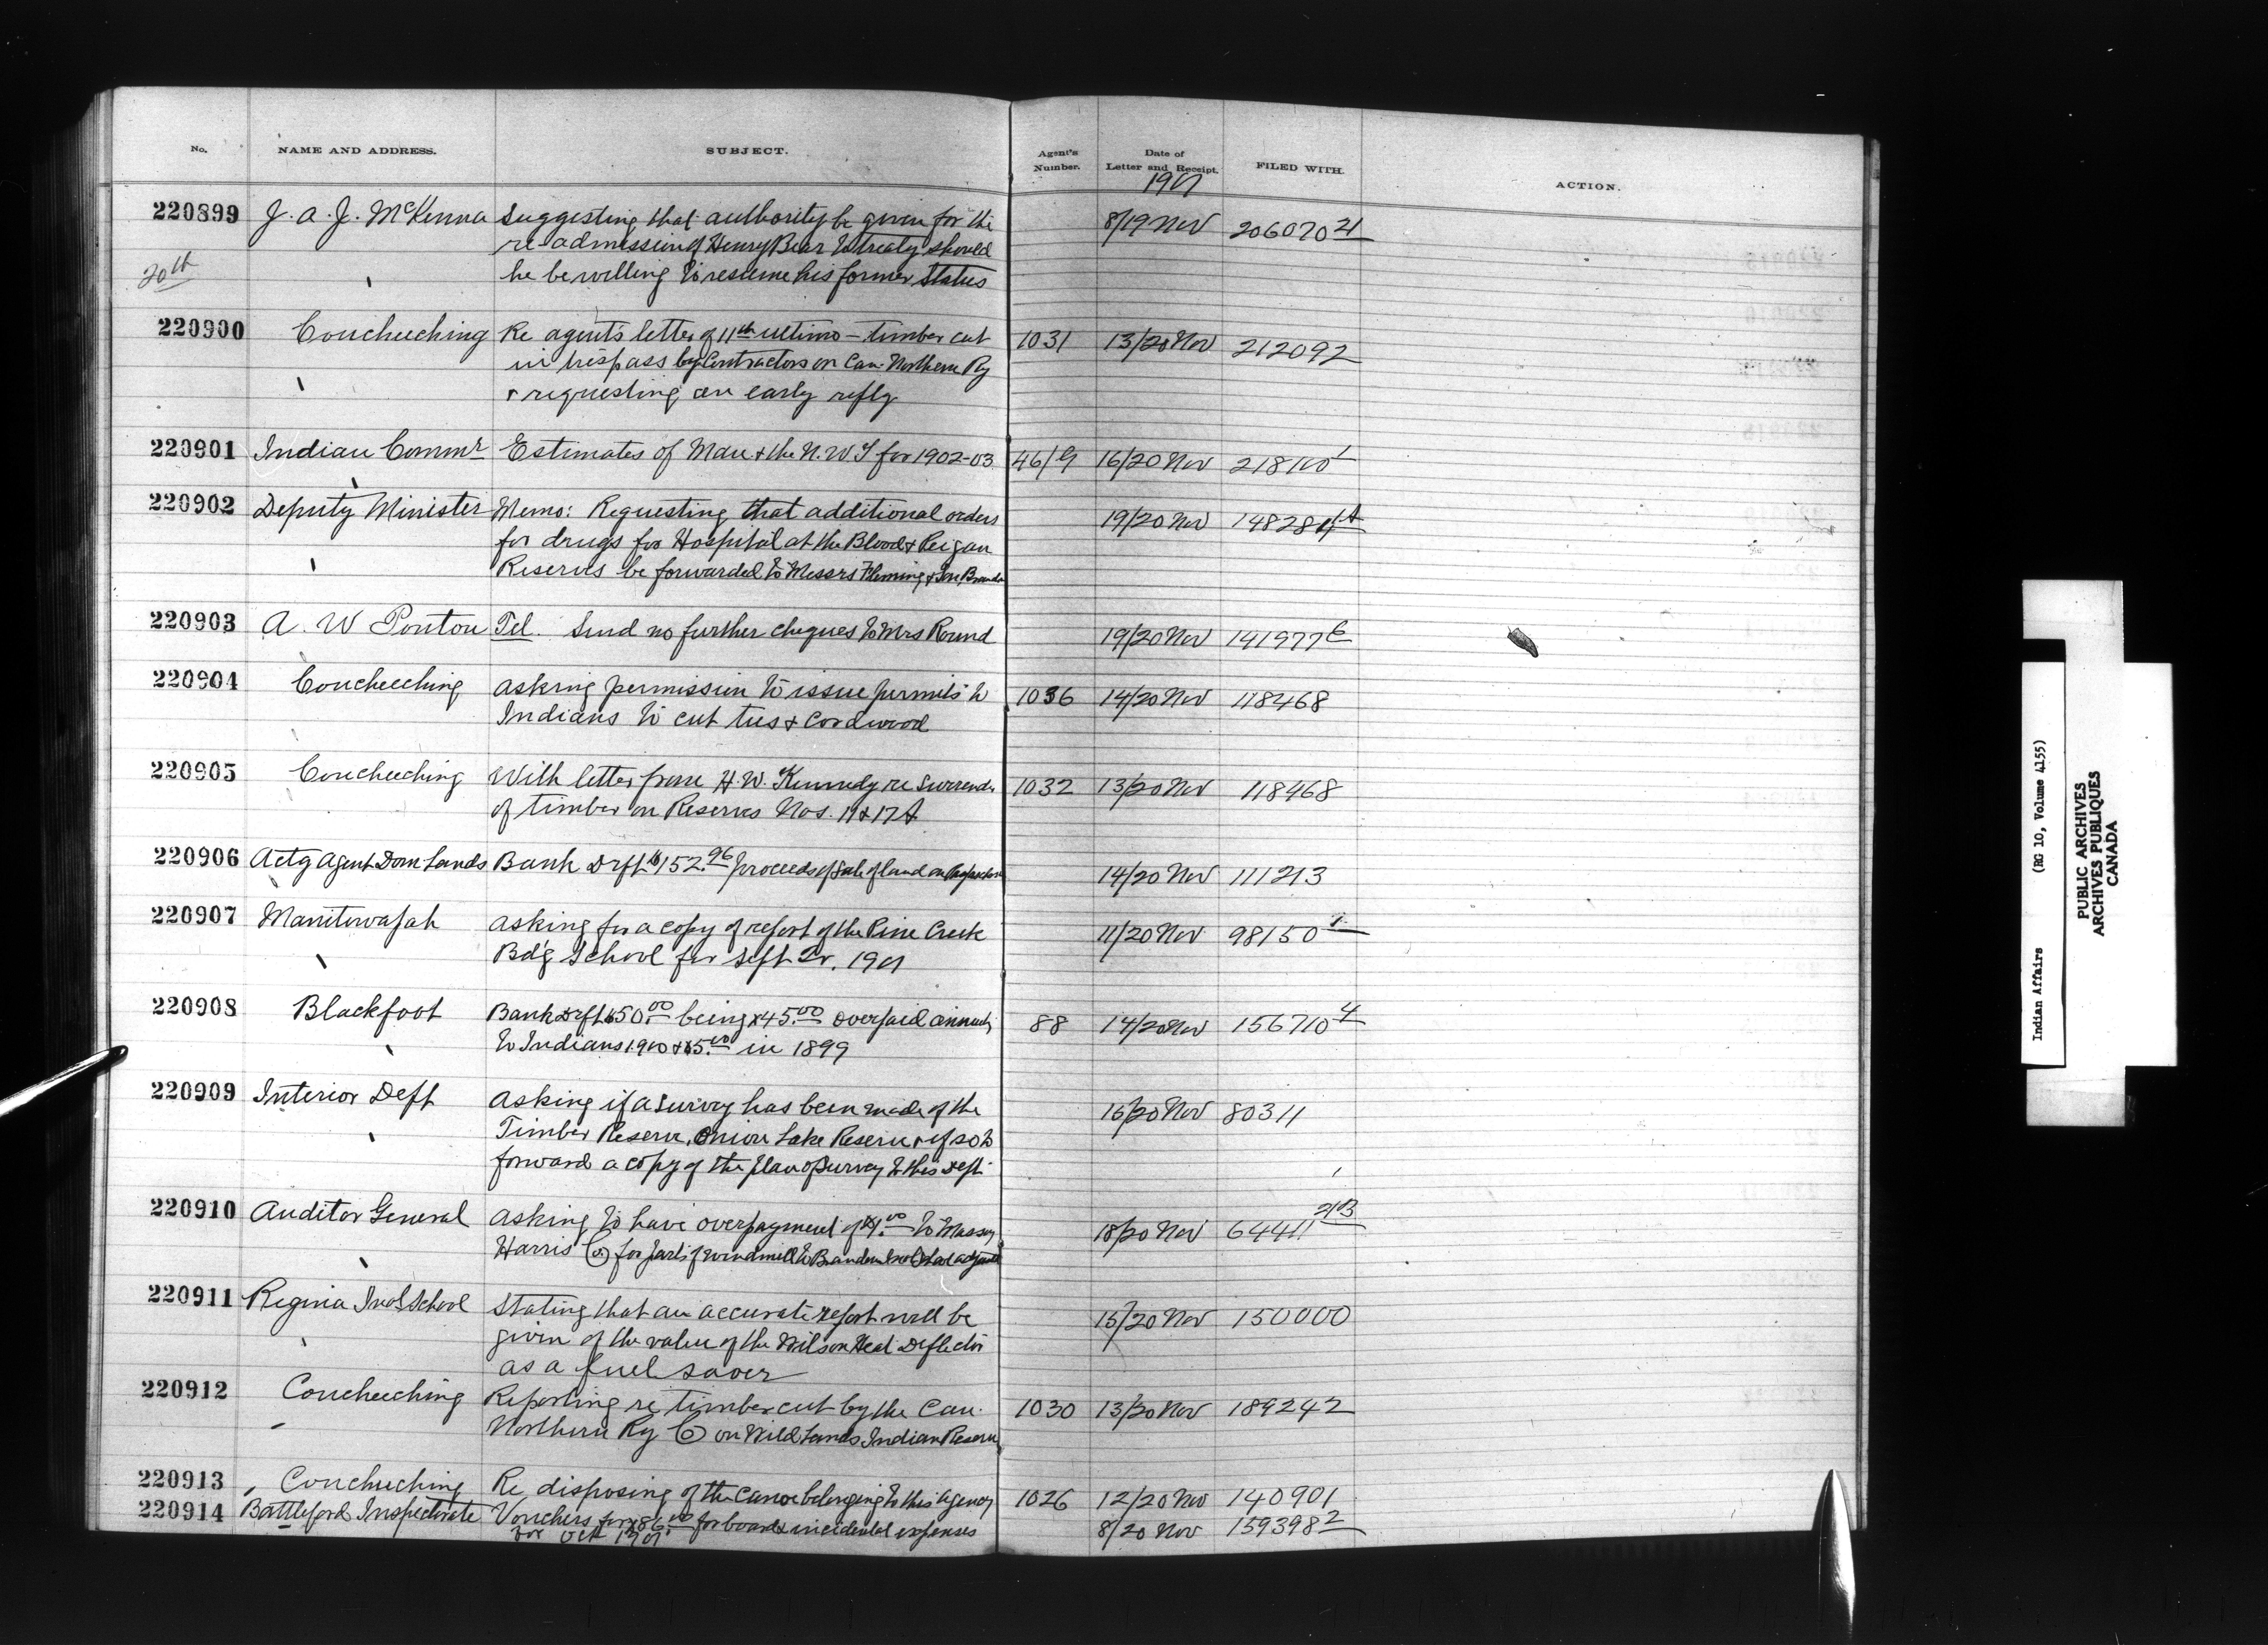 No. NAME AND ADDRESS. SUBJECT. Agent's Number. Date of Letter and Receipt. FILED WITH. ACTION.
1901
220899 J. A. J. McKenna Suggesting that authority be given for the 8/19 Nov 206070 21
re-admission of Henry Bear to treaty should
20th he be willing to resume his former status
220900 Coucheeching Re agent's letter of 11th ultimo – timber cut 1031 13/20 Nov 212092
in trespass by Contractors on Can. Northern Ry
& requesting an early reply
220901 Indian Commr Estimates of Man. & the N.W.T for 1902-03 46/9 16/20 Nov 218100 1
220902 Deputy Minister Memo: Requesting that additional orders 19/20 Nov 148284
for drugs for Hospital at the Blood & Peigan
Reserves be forwarded to Messrs Fleming & Son Brandon
220903 A. W Ponton Tel. Send no further cheques to Mrs Round 19/20 Nov 141977 E
220904 Coucheeching Asking permission to issue permits to 1036 14/20 Nov 118468
Indians to cut ties & cordwood
220905 Coucheeching With letter from H. W. Kennedy re surrender 1032 13/20 Nov 118468
of timber on Reserves Nos. 11 & 17A
220906 Actg Agent Dom Lands Bank Drft $152.96 proceeds of Sale of land on 14/20 Nov 111213
220907 Manitowapah Asking for a copy of report of the Pine Creek 11/20 Nov 98150 1
Bd'g School for Sept Qr. 1901
220908 Blackfoot Bank Drft $50.00 being $45.00 overpaid annuity 88 14/20 Nov 156710 4
to Indians 1900 & $5.00 in 1899
220909 Interior Dept Asking if a survey has been made of the 16/20 Nov 80311
Timber Reserve, Onion Lake Reserve & if so to
forward a copy of the plan of Survey to this Dept.
220910 Auditor General Asking to have overpayment of $1.00 to Massey 18/20 Nov 64411 2B
Harris Co for parts of windmill to Brandon Ind School adjusted
220911 Regina Ind School Stating that an accurate report will be 15/20 Nov 150000
given of the value of the Wilson Heat Deflector
as a fuel saver
220912 Coucheeching Reporting re timber cut by the Can. 1030 13/20 Nov 189242
Northern Ry Co on Wild Lands Indian Reserve
220913 Coucheeching Re disposing of the canoe belonging to this Agency 1026 12/20 Nov 140901
220914 Battleford Inspectorate Vouchers for $86.00 for board & incidental expenses 8/20 Nov 159398 2
for Oct 1901
Indian Affairs (RG 10, Volume 4155)
PUBLIC ARCHIVES
ARCHIVES PUBLIQUES
CANADA